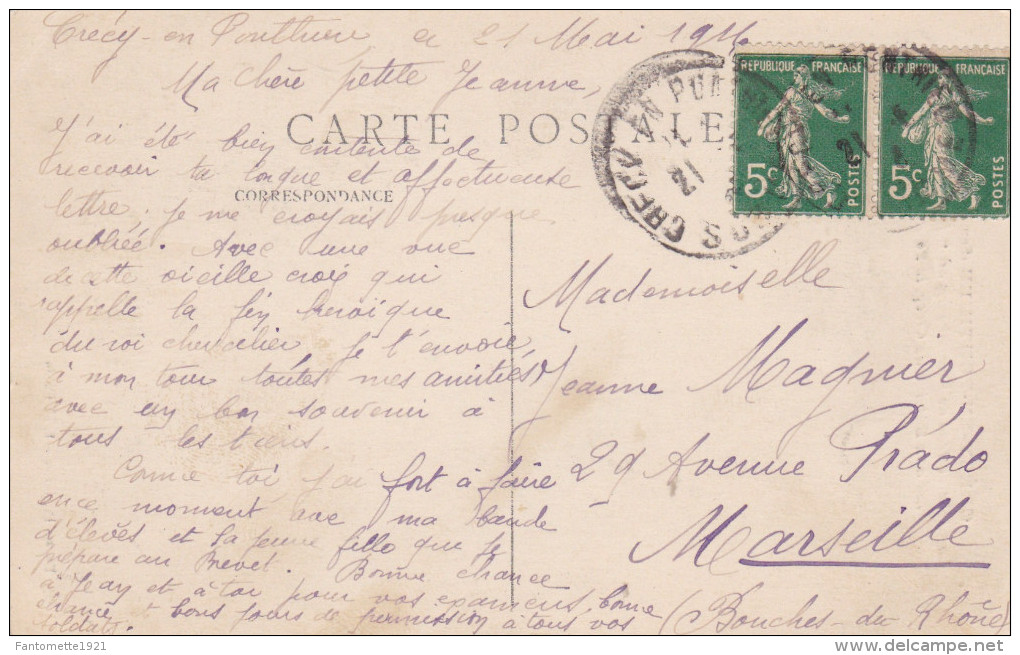 Crécy-en Ponthieu le 21 Mai 19
Ma chère petite Jeanne,
CARTE POSTALE
J'ai été bien contente de
recevoir ta longue et affectueuse
CORRESPONDANCE
lettre. Je me croyais presque
oubliée. Avec une vue
de cette vieille croix qui
rappelle la fin héroïque
du roi chevalier je t'envoie,
à mon tour toutes mes amitiés
avec un bon souvenir à
tous les tiens.
Comme toi j'ai fort à faire
en ce moment avec ma bande
d'élèves et la jeune fille que je
prépare au Brevet. Bonne chance
à Jean et à toi pour vos examens, bonne
chance et bons jours de permission à tous vos
soldats.
REPUBLIQUE FRANÇAISE
5c POSTES
REPUBLIQUE FRANÇAISE
5c POSTES
CRECY EN
21
Mademoiselle
Jeanne Magnier
29 Avenue Prado
Marseille
(Bouches-du Rhône)
Fantomette1921
delcampe.net